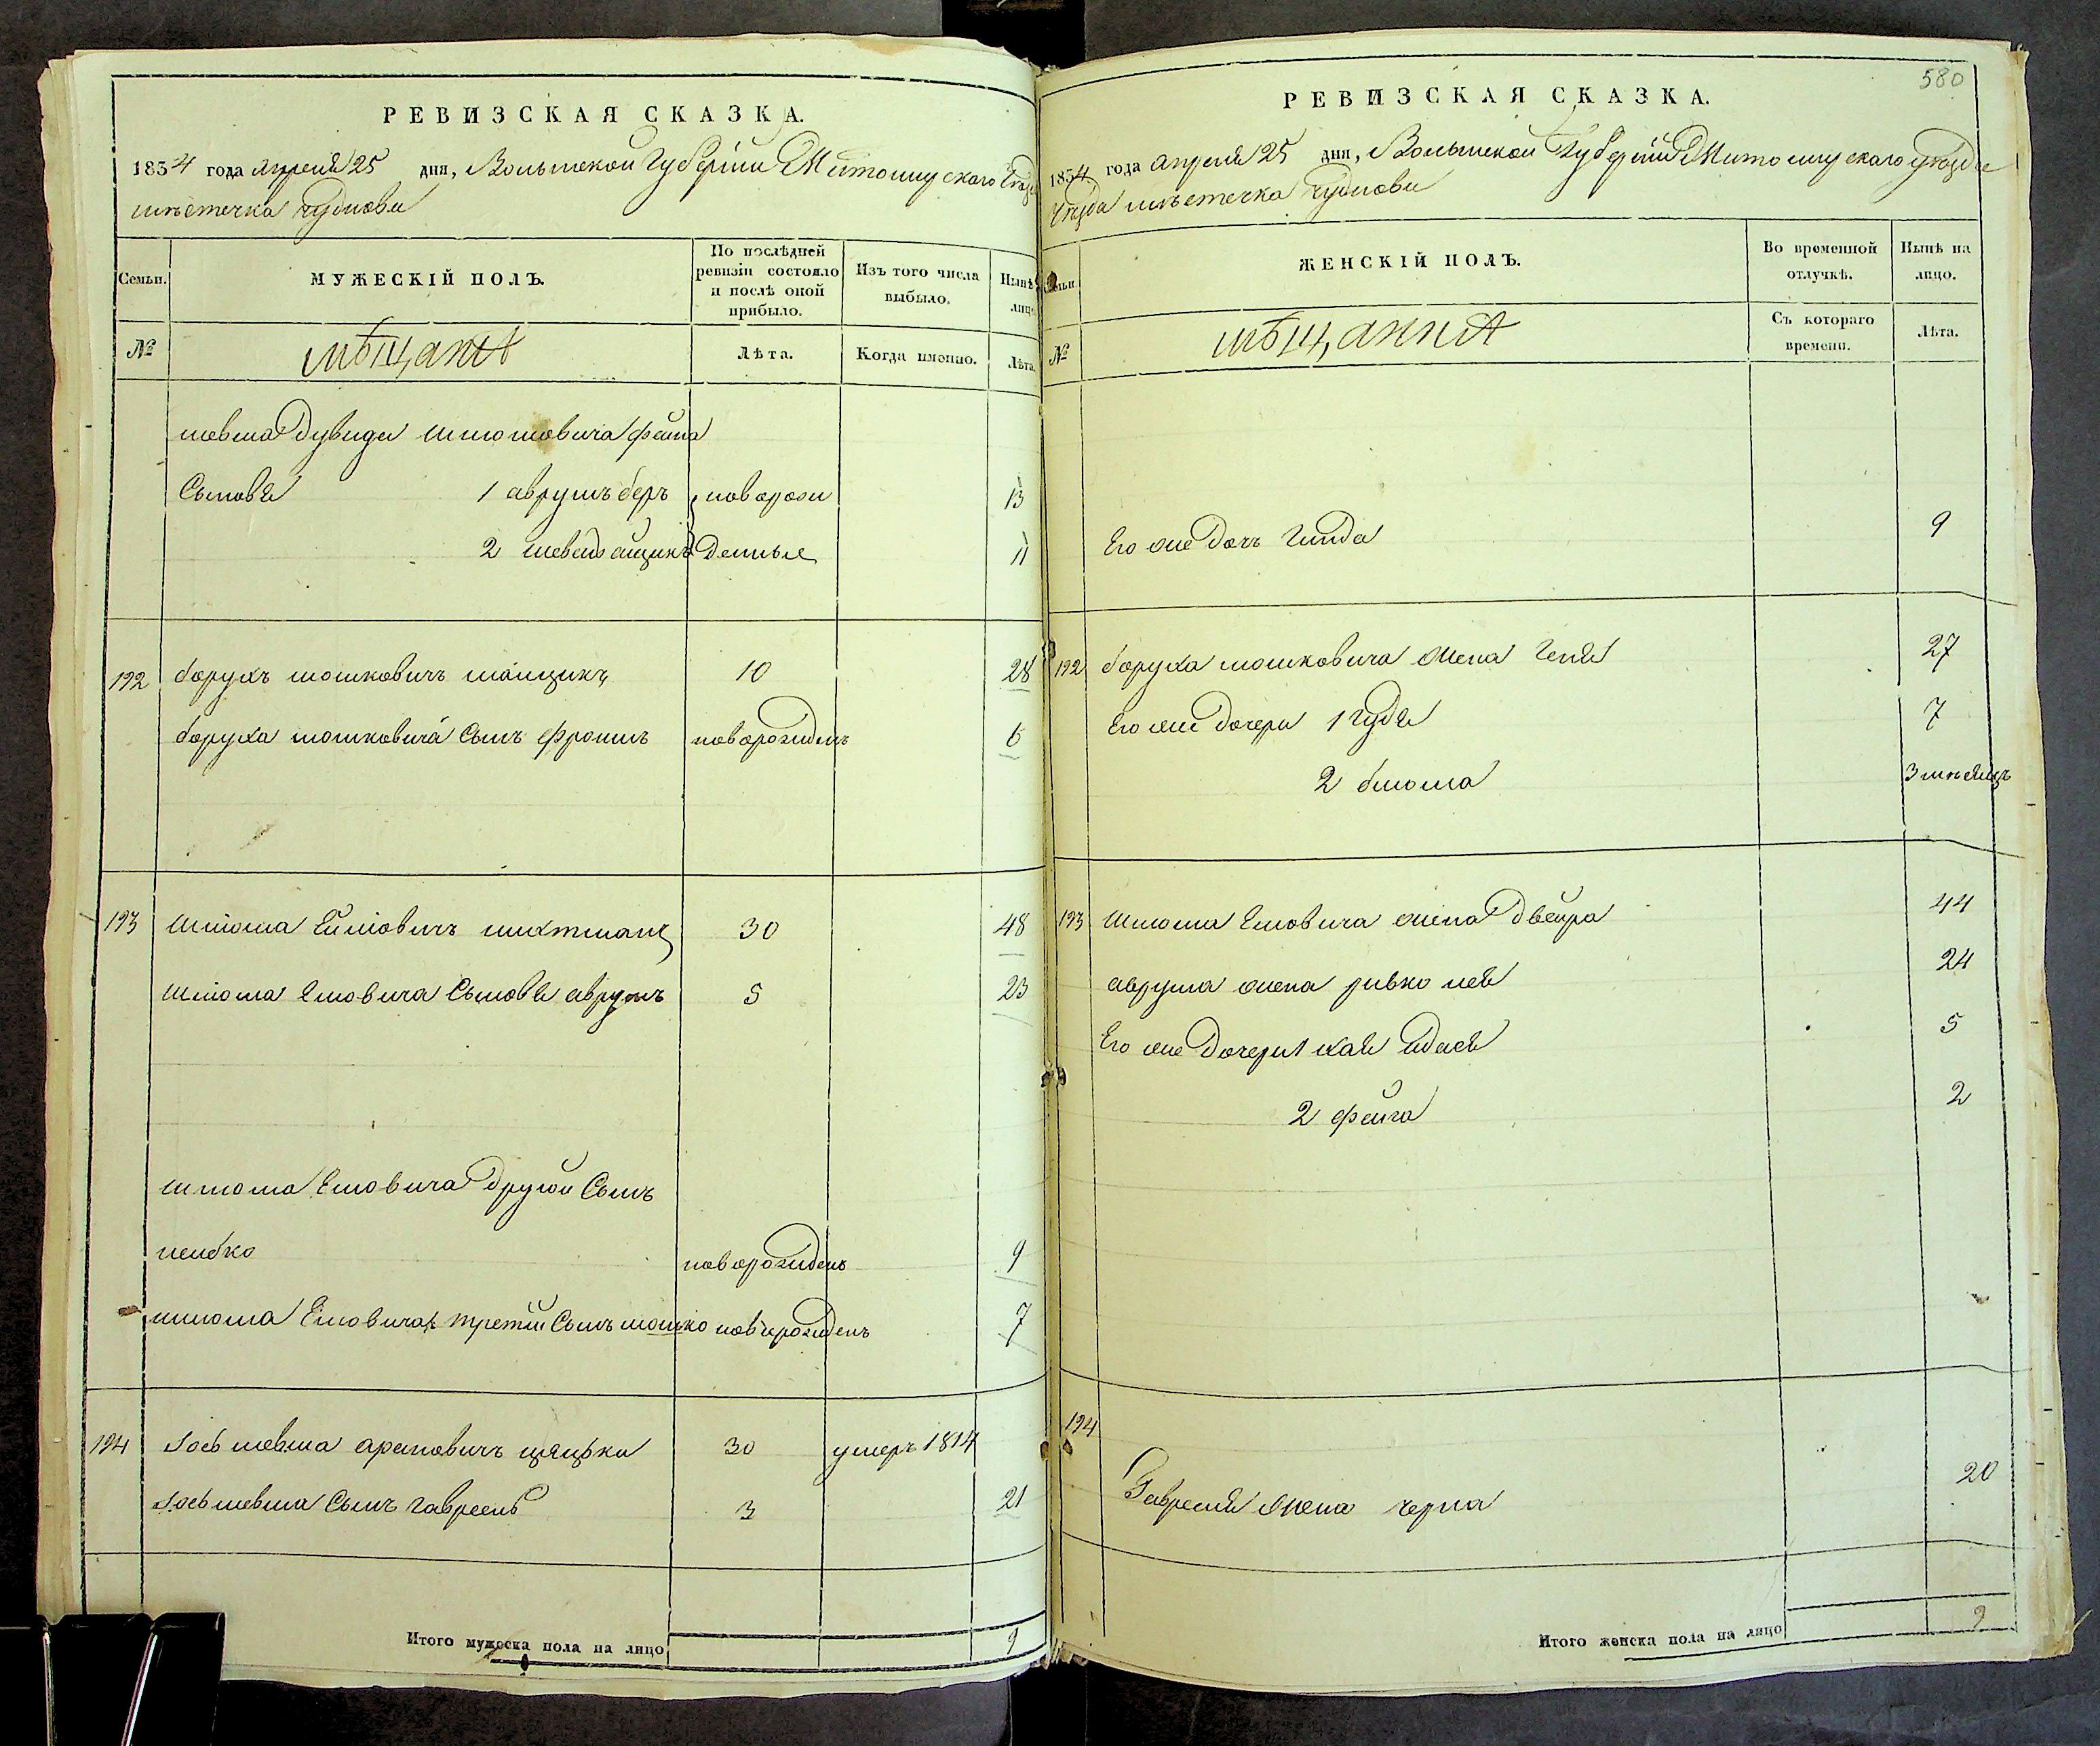 РЕВИЗСКАЯ СКАЗКА.
1834 года апреля 25 дня, Волынской Губернии Житомирскаго Уезда
местечка Чуднова
Семьи.
МУЖЕСКІЙ ПОЛЪ.
По послѣдней ревизіи состояло и послѣ оной прибыло.
Изъ того числа выбыло.
Нынѣ
лицо
№
мѣщаня
Лѣта.
Когда именно.
Лѣта.
Дувида Шлиомовича
Сыновя 1 аврумъ беръ новорож 13
2 денные 11
192 борухъ мошковичъ 10 28
боруха мошковича Сынъ фроимъ новорожденъ 6
193 Шлиома 30 48
Шлиома Елиовича Сыновя аврумъ 5 23
шлиома Елиовича другой Сынъ
лейбко новорожденъ 9
шлиома Елиовича третій Сынъ мошко новорожденъ 7
194 Іось арановичъ 30 умеръ 1814
Сынъ гавреель 3 21
Итого мужеска пола на лицо 9
580
РЕВИЗСКАЯ СКАЗКА.
1834 года апреля 25 дня, Волынской Губернии Житомирскаго уезда
Уезда местечка Чуднова
ЖЕНСКІЙ ПОЛЪ.
Во временной отлучкѣ.
Нынѣ на лицо.
№
мѣщання
Съ котораго времени.
Лѣта.
Его же дочь Гинда 9
192 боруха мошковича жена Геня 27
Его же дочери 1 Гудя 7
2 блюма 3 месяцъ
193 шлиома Елиовича жена Двейра 44
аврума жена ривка лея 24
Его же дочери 1 хая 5
2 фейга 2
194
Гаврееля жена черна 20
Итого женска пола на лицо 9